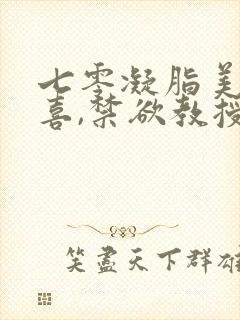 七零凝脂美
喜,禁欲教授
笑盡天下群雄